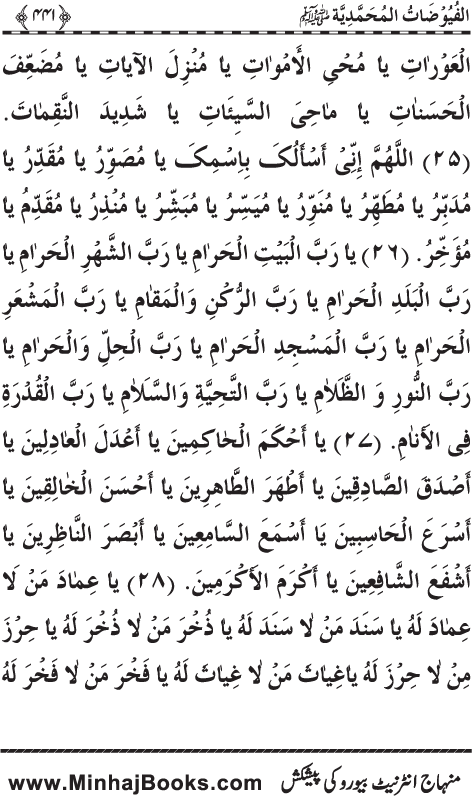 الفُيُوْضَاتُ المُحَمَّدِيَّة ﷺ ﴿۴۴۱﴾
الْعَوْرَاتِ يَا مُحْيِ الأَمْوَاتِ يَا مُنْزِلَ الآيَاتِ يَا مُضَعِّفَ
الْحَسَنَاتِ يَا مَاحِيَ السَّيِّئَاتِ يَا شَدِيدَ النَّقِمَاتِ.
(۲۵) اللَّهُمَّ إِنِّيْ أَسْأَلُكَ بِاسْمِكَ يَا مُصَوِّرُ يَا مُقَدِّرُ يَا
مُدَبِّرُ يَا مُطَهِّرُ يَا مُنَوِّرُ يَا مُيَسِّرُ يَا مُبَشِّرُ يَا مُنْذِرُ يَا مُقَدِّمُ يَا
مُؤَخِّرُ. (۲۶) يَا رَبَّ الْبَيْتِ الْحَرَامِ يَا رَبَّ الشَّهْرِ الْحَرَامِ يَا
رَبَّ الْبَلَدِ الْحَرَامِ يَا رَبَّ الرُّكْنِ وَالْمَقَامِ يَا رَبَّ الْمَشْعَرِ
الْحَرَامِ يَا رَبَّ الْمَسْجِدِ الْحَرَامِ يَا رَبَّ الْحِلِّ وَالْحَرَامِ يَا
رَبَّ النُّورِ وَ الظَّلَامِ يَا رَبَّ التَّحِيَّةِ وَالسَّلَامِ يَا رَبَّ الْقُدْرَةِ
فِي الأَنَامِ. (۲۷) يَا أَحْكَمَ الْحَاكِمِينَ يَا أَعْدَلَ الْعَادِلِينَ يَا
أَصْدَقَ الصَّادِقِينَ يَا أَطْهَرَ الطَّاهِرِينَ يَا أَحْسَنَ الْخَالِقِينَ يَا
أَسْرَعَ الْحَاسِبِينَ يَا أَسْمَعَ السَّامِعِينَ يَا أَبْصَرَ النَّاظِرِينَ يَا
أَشْفَعَ الشَّافِعِينَ يَا أَكْرَمَ الأَكْرَمِينَ. (۲۸) يَا عِمَادَ مَنْ لَا
عِمَادَ لَهُ يَا سَنَدَ مَنْ لَا سَنَدَ لَهُ يَا ذُخْرَ مَنْ لَا ذُخْرَ لَهُ يَا حِرْزَ
مِنْ لَا حِرْزَ لَهُ يَاغِيَاثَ مَنْ لَا غِيَاثَ لَهُ يَا فَخْرَ مَنْ لَا فَخْرَ لَهُ
منہاج انٹرنیٹ بیورو کی پیشکش www.MinhajBooks.com